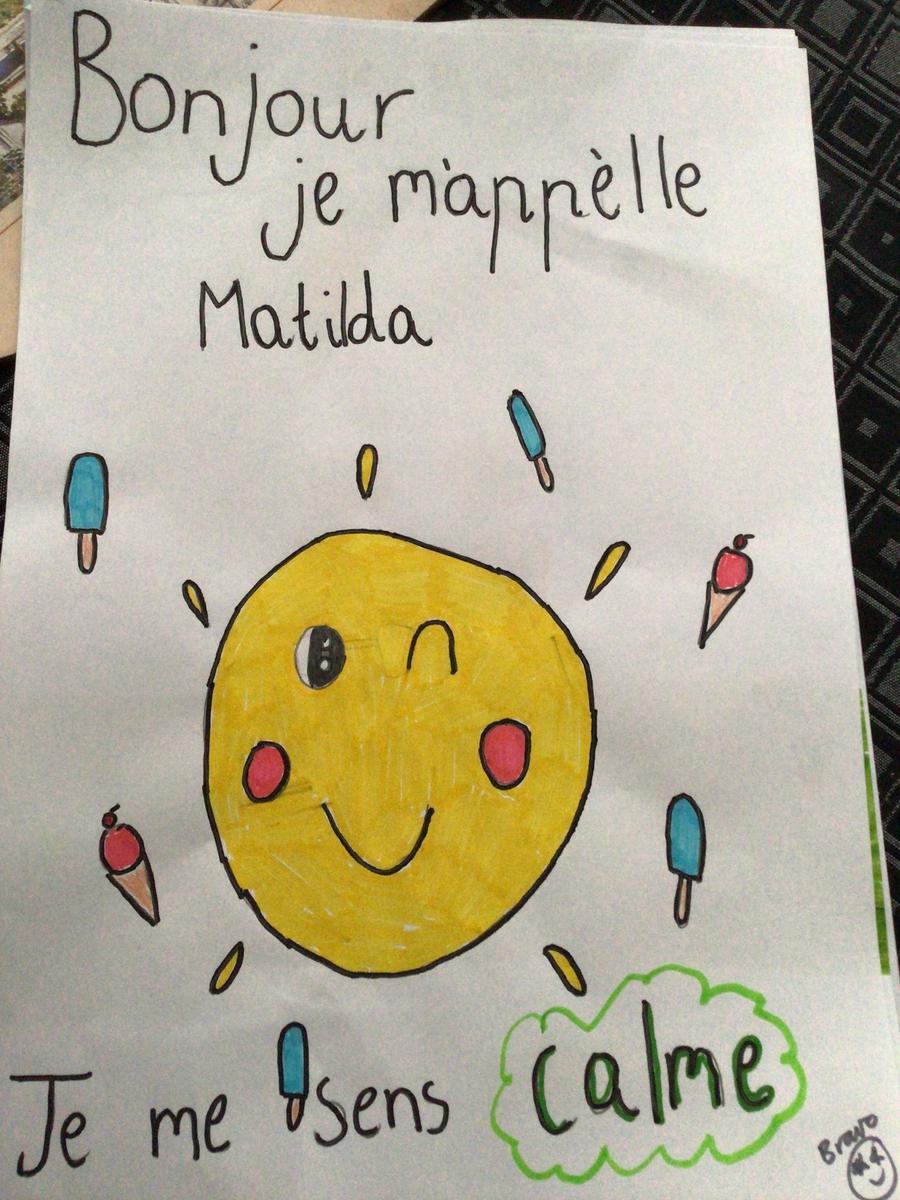 Bonjour
je m'appèlle
Matilda
Je me sens calme
Bravo